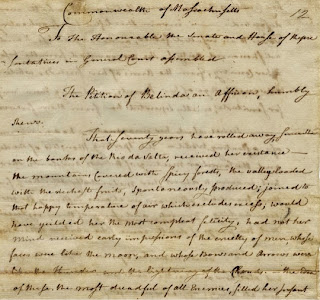 Commonwealth of Massachusetts
12
To The Honourable the Senate and House of Repre
sentatives in General Court assembled
The Petition of Belinda an Affrican, humbly
shews.
That seventy years have rolled away, since she
on the banks of the Rio da Valta, received her existence
the mountains Covered with spicy forests, the valleys loaded
with the richest fruits, spontaneously produced; joined to
that happy temperature of air which excludes excess, would
have yielded her the most compleat felicity, had not her
mind received early impressions of the cruelty of men, whose
faces were like the moon, and whose Bows and Arrows were
like the thunder and the lightning of the Clouds. the idea
of these, the most dreadful of all Enemies, filled her infant